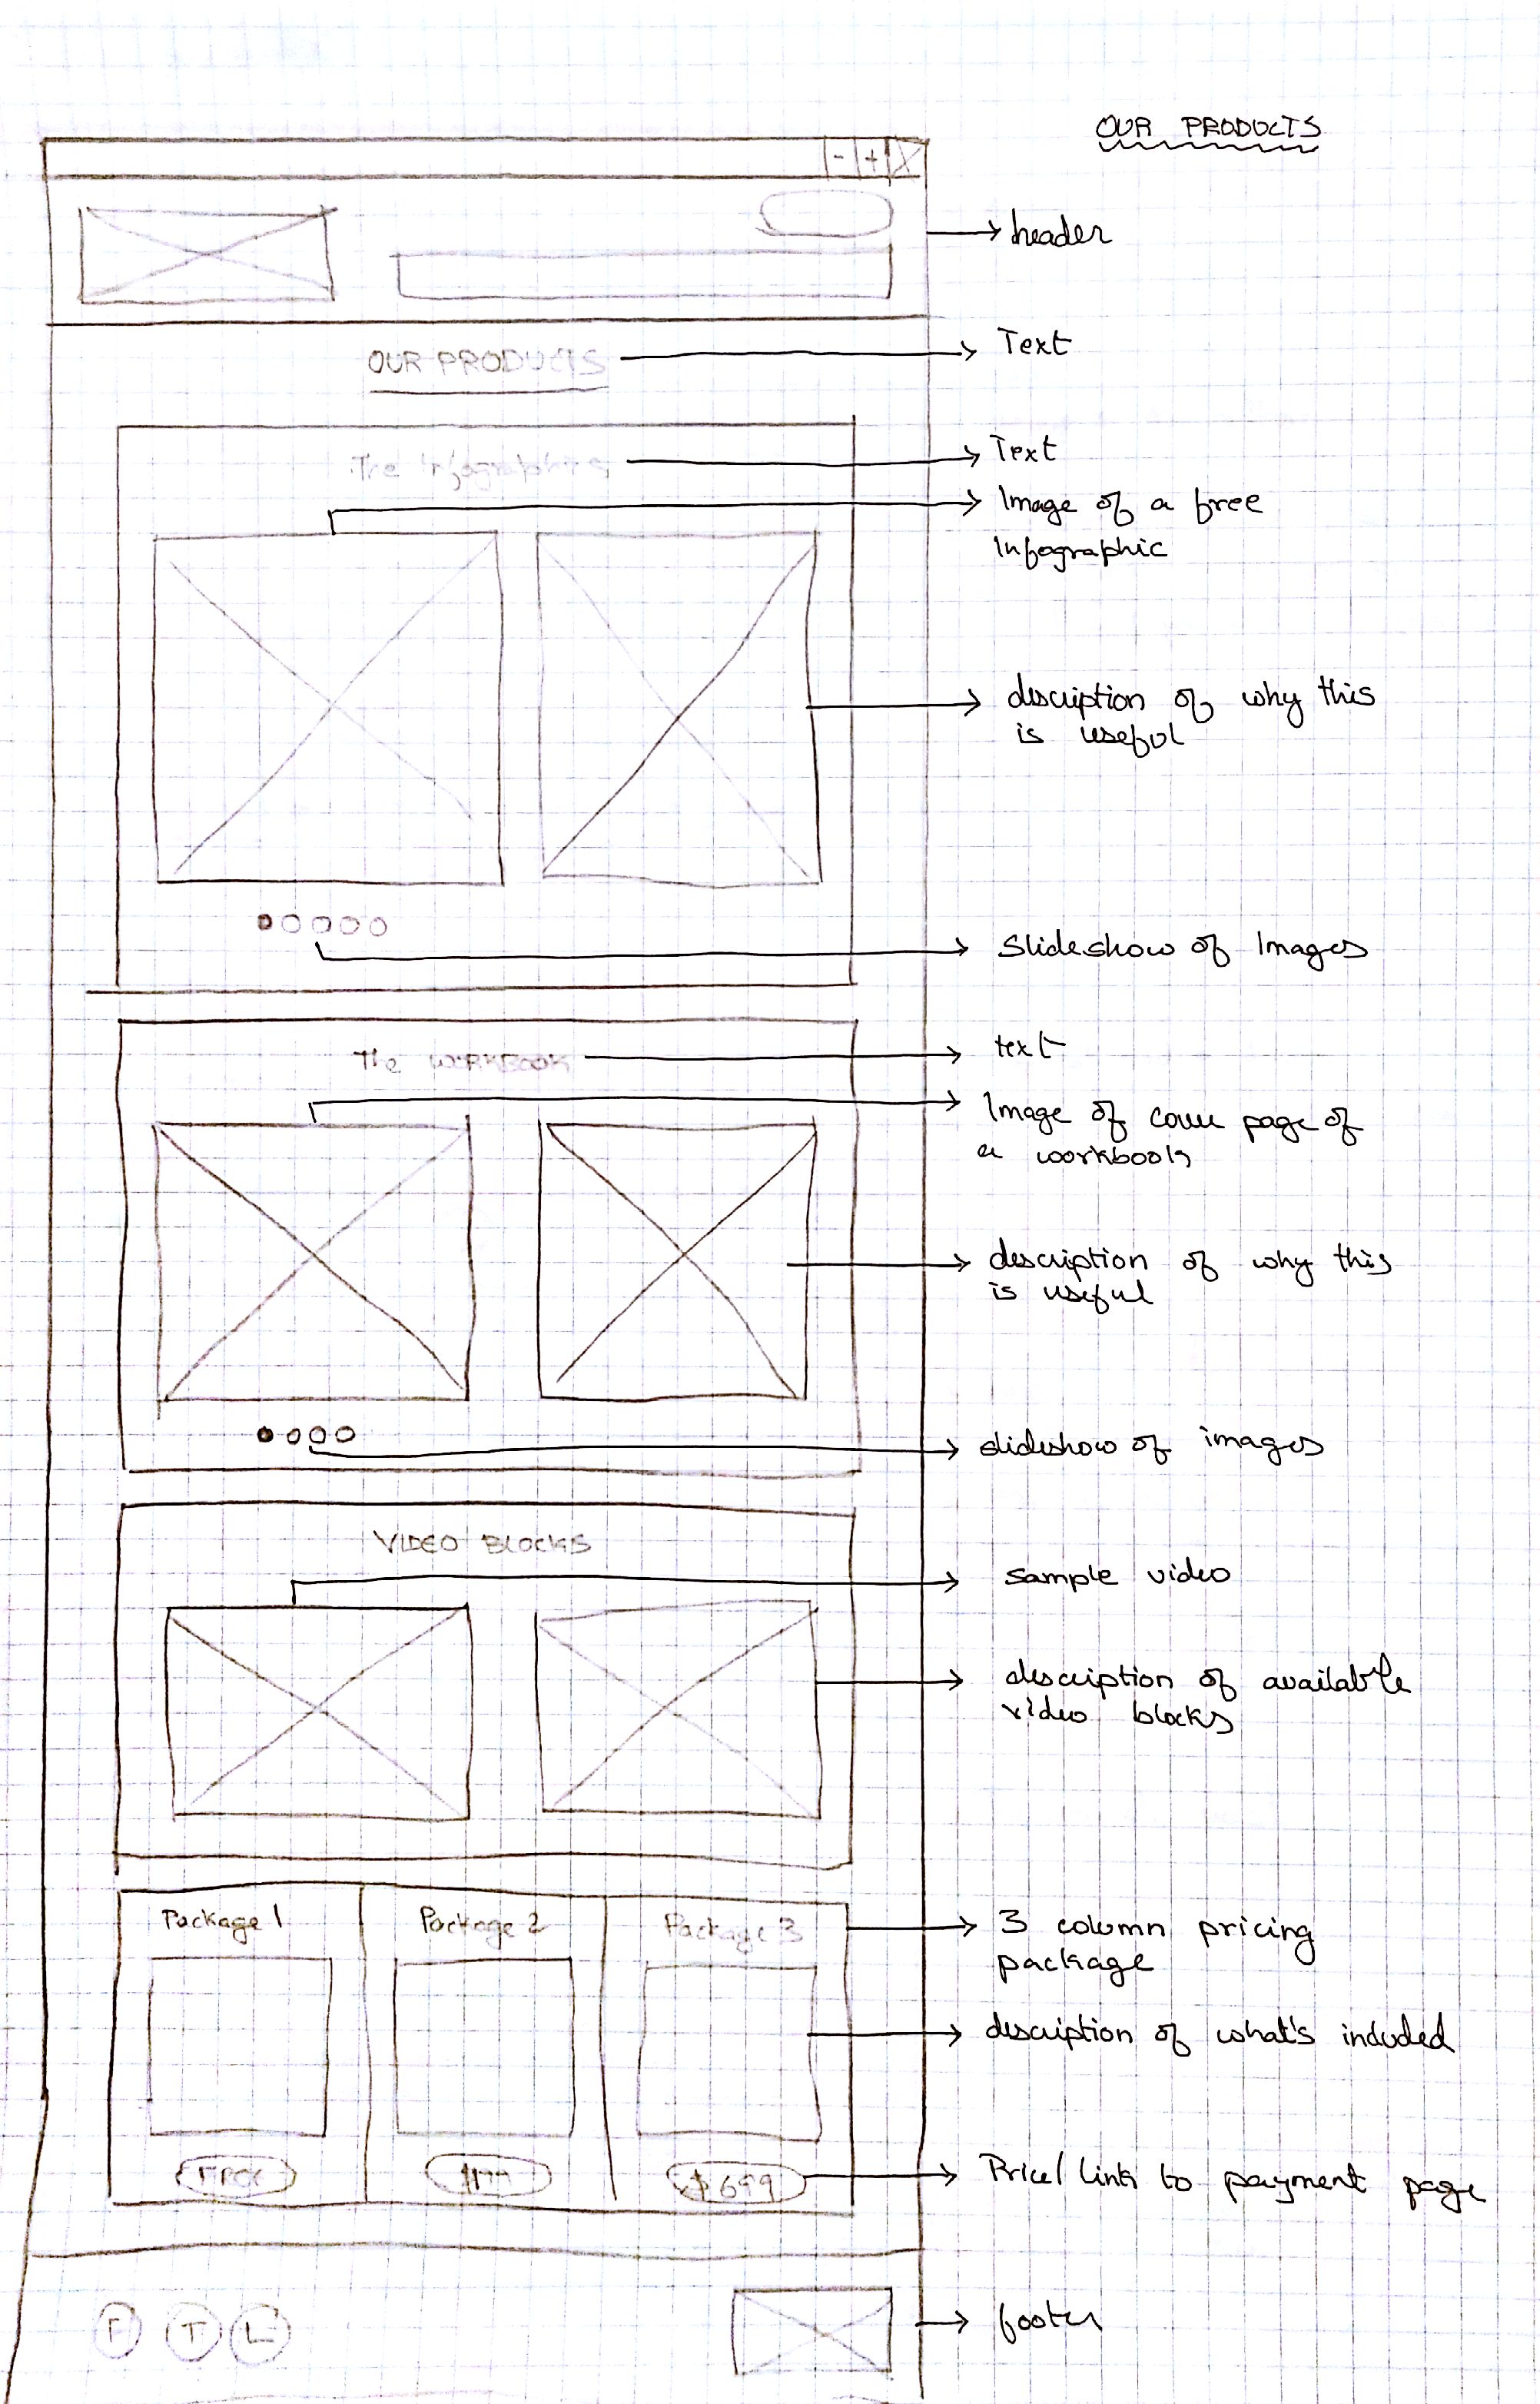 OUR PRODUCTS
- + X
header
OUR PRODUCTS
Text
The Infographics
Text
Image of a free
Infographic
description of why this
is useful
Slideshow of Images
The WORKBOOK
text
Image of cover page of
a workbook
description of why this
is useful
slideshow of images
VIDEO BLOCKS
sample video
description of available
video blocks
Package 1
Package 2
Package 3
3 column pricing
package
description of what's included
FREE
$699
Price/ link to payment page
F T L
footer